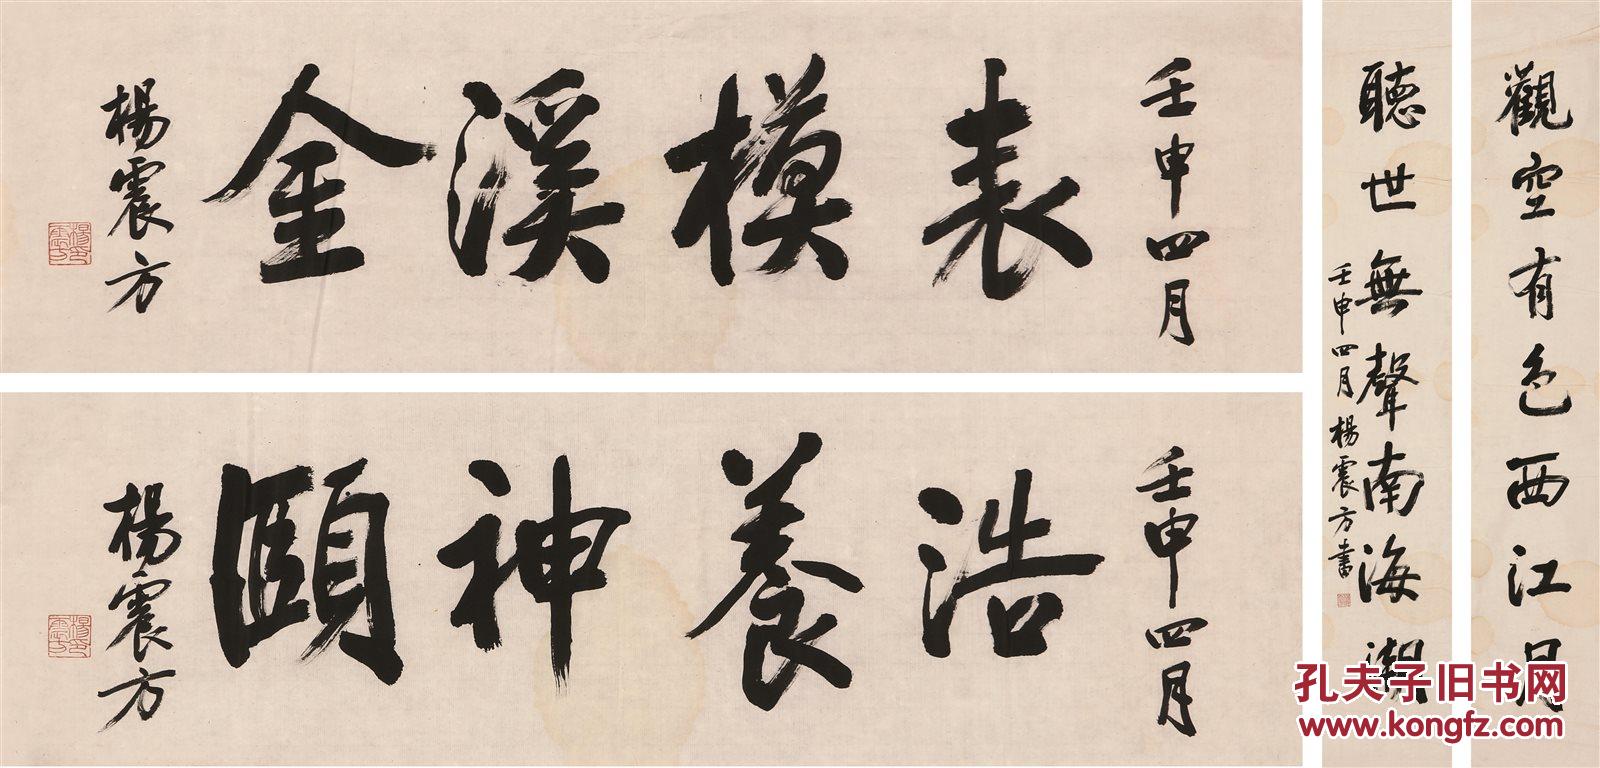 壬申四月
表模溪金
楊震方
壬申四月
浩養神頤
楊震方
觀空有色西江月
聽世無聲南海潮
壬申四月楊震方書
孔夫子旧书网
www.kongfz.com